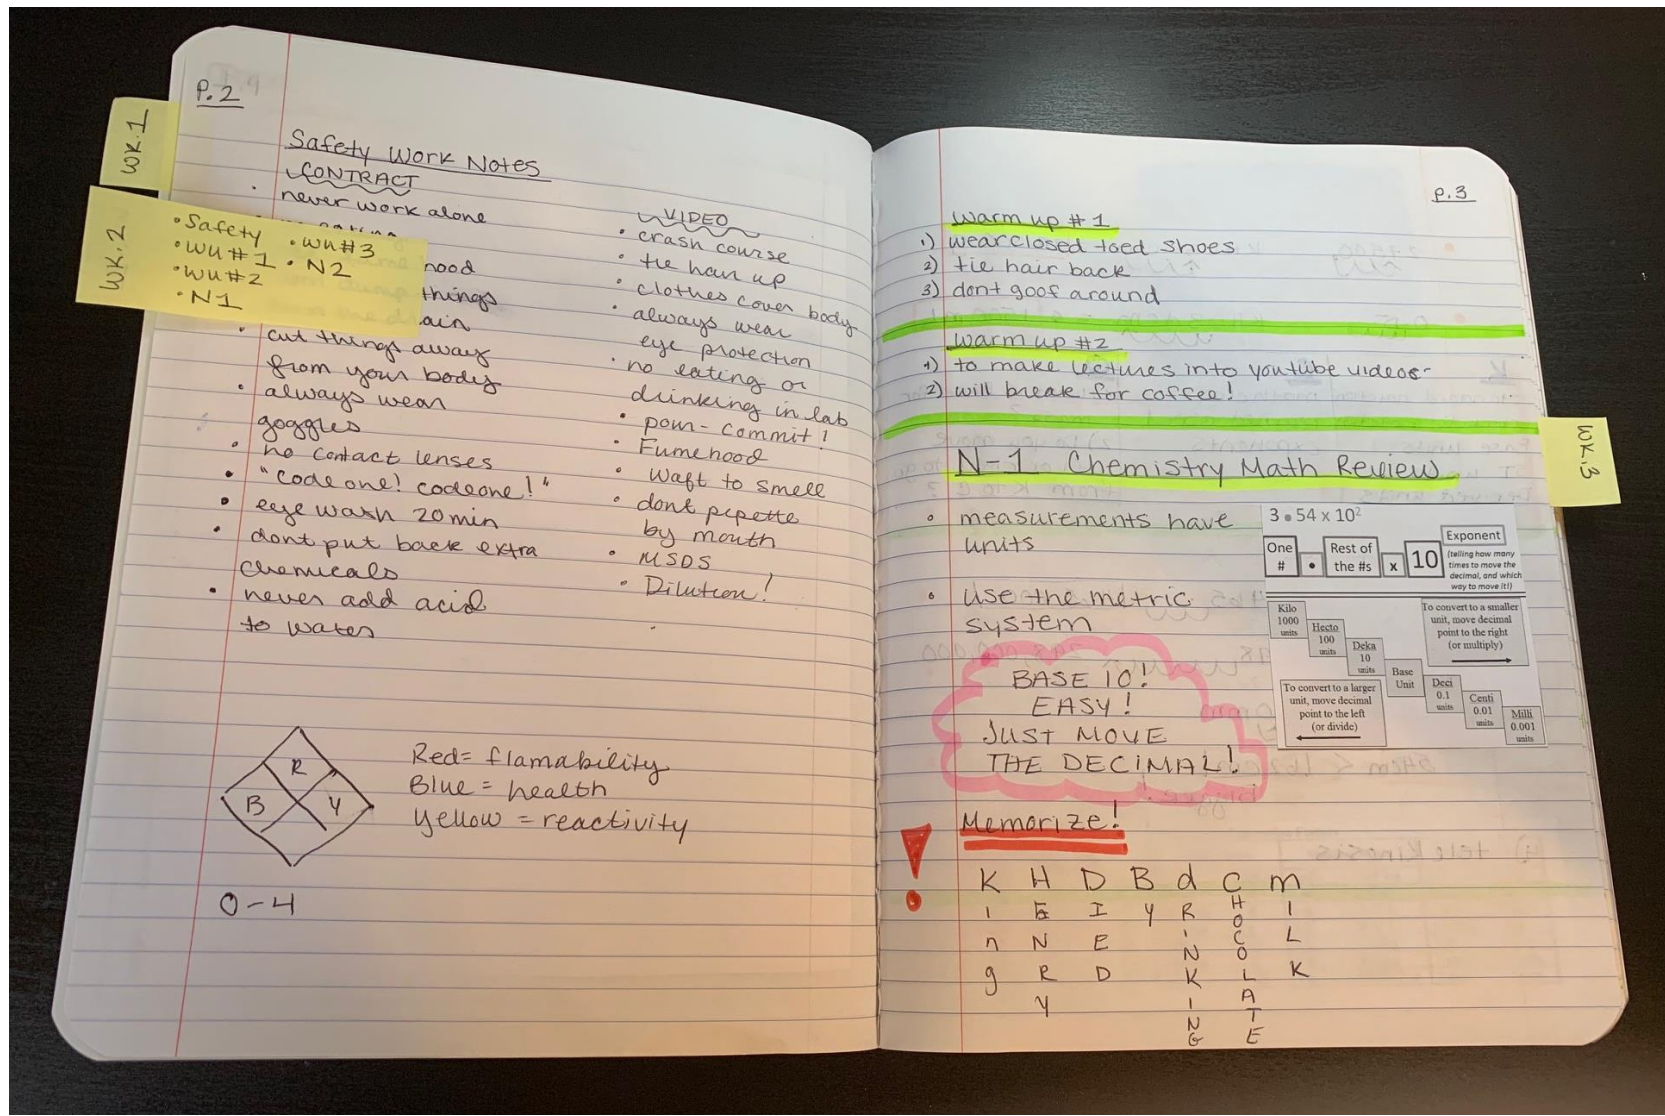 P.2
WK.1
Safety Work Notes
CONTRACT
• never work alone
WK.2
• Safety
• WU #1
• WU #2
• N1
• WU #3
• N2
hood
things
ain
• cut things away
from your body
• always wear
goggles
• no contact lenses
• "Code one! codeone!"
• eye wash 20 min
• dont put back extra
chemicals
• never add acid
to water
VIDEO
• crash course
• tie hair up
• clothes cover body
• always wear
eye protection
• no eating or
drinking in lab
• pour - commit!
• Fumehood
• Waft to smell
• dont pipette
by mouth
• MSDS
• Dilution!
R
B
Y
Red = flamability
Blue = health
Yellow = reactivity
0-4
p.3
Warm up #1
1) wear closed toed shoes
2) tie hair back
3) dont goof around
Warm up #2
1) to make lectures into youtube videos
2) will break for coffee!
WK.3
N-1 Chemistry Math Review
• measurements have
units
• use the metric
system
3 • 54 x 10²
One
#
•
Rest of
the #s
x
10
Exponent
(telling how many
times to move the
decimal, and which
way to move it!)
Kilo
1000
units
Hecto
100
units
Deka
10
units
Base
Unit
Deci
0.1
units
Centi
0.01
units
Milli
0.001
units
To convert to a smaller
unit, move decimal
point to the right
(or multiply)
To convert to a larger
unit, move decimal
point to the left
(or divide)
BASE 10!
EASY!
JUST MOVE
THE DECIMAL!
! Memorize!
K H D B d C m
King
HENRY
DIED
BY
dRINKING
CHOCOLATE
mILK